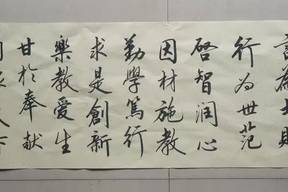 言為士則
行為世范
啓智润心
因材施教
勤學篤行
求是創新
樂教爱生
甘於奉献